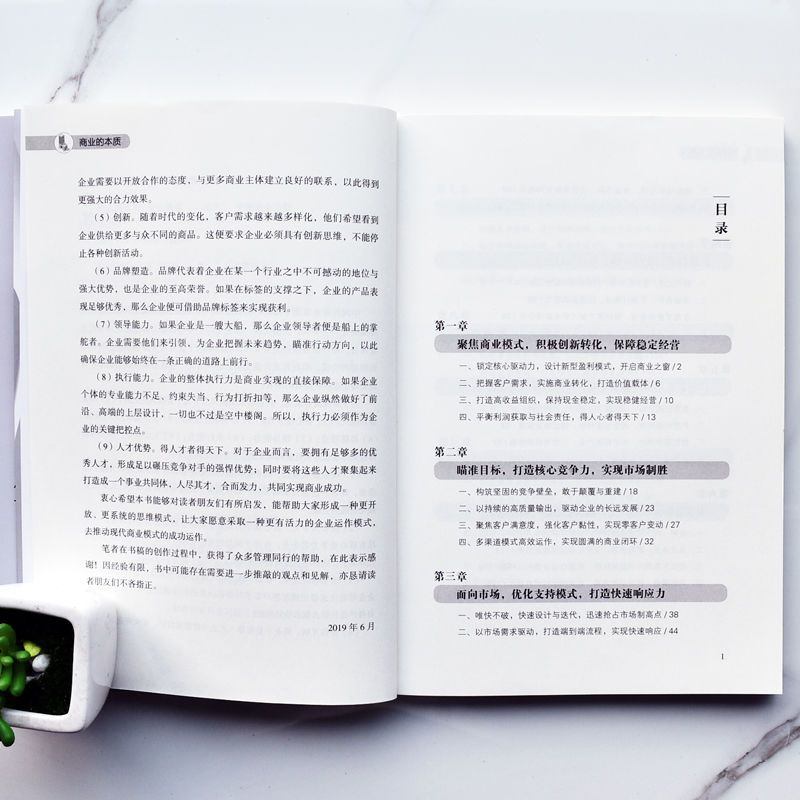 商业的本质
企业需要以开放合作的态度，与更多商业主体建立良好的联系，以此得到
更强大的合力效果。
（5）创新。随着时代的变化，客户需求越来越多样化，他们希望看到
企业供给更多与众不同的商品。这便要求企业必须具有创新思维，不能停
止各种创新活动。
（6）品牌塑造。品牌代表着企业在某一个行业之中不可撼动的地位与
强大优势，也是企业的至高荣誉。如果在标签的支撑之下，企业的产品表
现足够优秀，那么企业便可借助品牌标签来实现获利。
（7）领导能力。如果企业是一艘大船，那么企业领导者便是船上的掌
舵者。企业需要他们来引领，为企业把握未来趋势，瞄准行动方向，以此
确保企业能够始终在一条正确的道路上前行。
（8）执行能力。企业的整体执行力是商业实现的直接保障。如果企业
个体的专业能力不足、约束失当、行为打折扣等，那么企业纵然做好了前
沿、高端的上层设计，一切也不过是空中楼阁。所以，执行力必须作为企
业的关键把控点。
（9）人才优势。得人才者得天下。对于企业而言，要拥有足够多的优
秀人才，形成足以碾压竞争对手的强悍优势；同时要将这些人才聚集起来
打造成一个事业共同体，人尽其才，合而发力，共同实现商业成功。
衷心希望本书能够对读者朋友们有所启发，能帮助大家形成一种更开
放、更系统的思维模式，让大家愿意采取一种更有活力的企业运作模式，
去推动现代商业模式的成功运作。
笔者在书稿的创作过程中，获得了众多管理同行的帮助，在此表示感
谢！因经验有限，书中可能存在需要进一步推敲的观点和见解，亦恳请读
者朋友们不吝指正。
2019 年 6 月
目录
第一章
聚焦商业模式，积极创新转化，保障稳定经营
一、锁定核心驱动力，设计新型盈利模式，开启商业之窗 / 2
二、把握客户需求，实施商业转化，打造价值载体 / 6
三、打造高收益组织，保持现金稳定，实现稳健经营 / 10
四、平衡利润获取与社会责任，得人心者得天下 / 13
第二章
瞄准目标，打造核心竞争力，实现市场制胜
一、构筑坚固的竞争壁垒，敢于颠覆与重建 / 18
二、以持续的高质量输出，驱动企业的长远发展 / 23
三、聚焦客户满意度，强化客户黏性，实现零客户变动 / 27
四、多渠道模式高效运作，实现圆满的商业闭环 / 32
第三章
面向市场，优化支持模式，打造快速响应力
一、唯快不破，快速设计与迭代，迅速抢占市场制高点 / 38
二、以市场需求驱动，打造端到端流程，实现快速响应 / 44
1